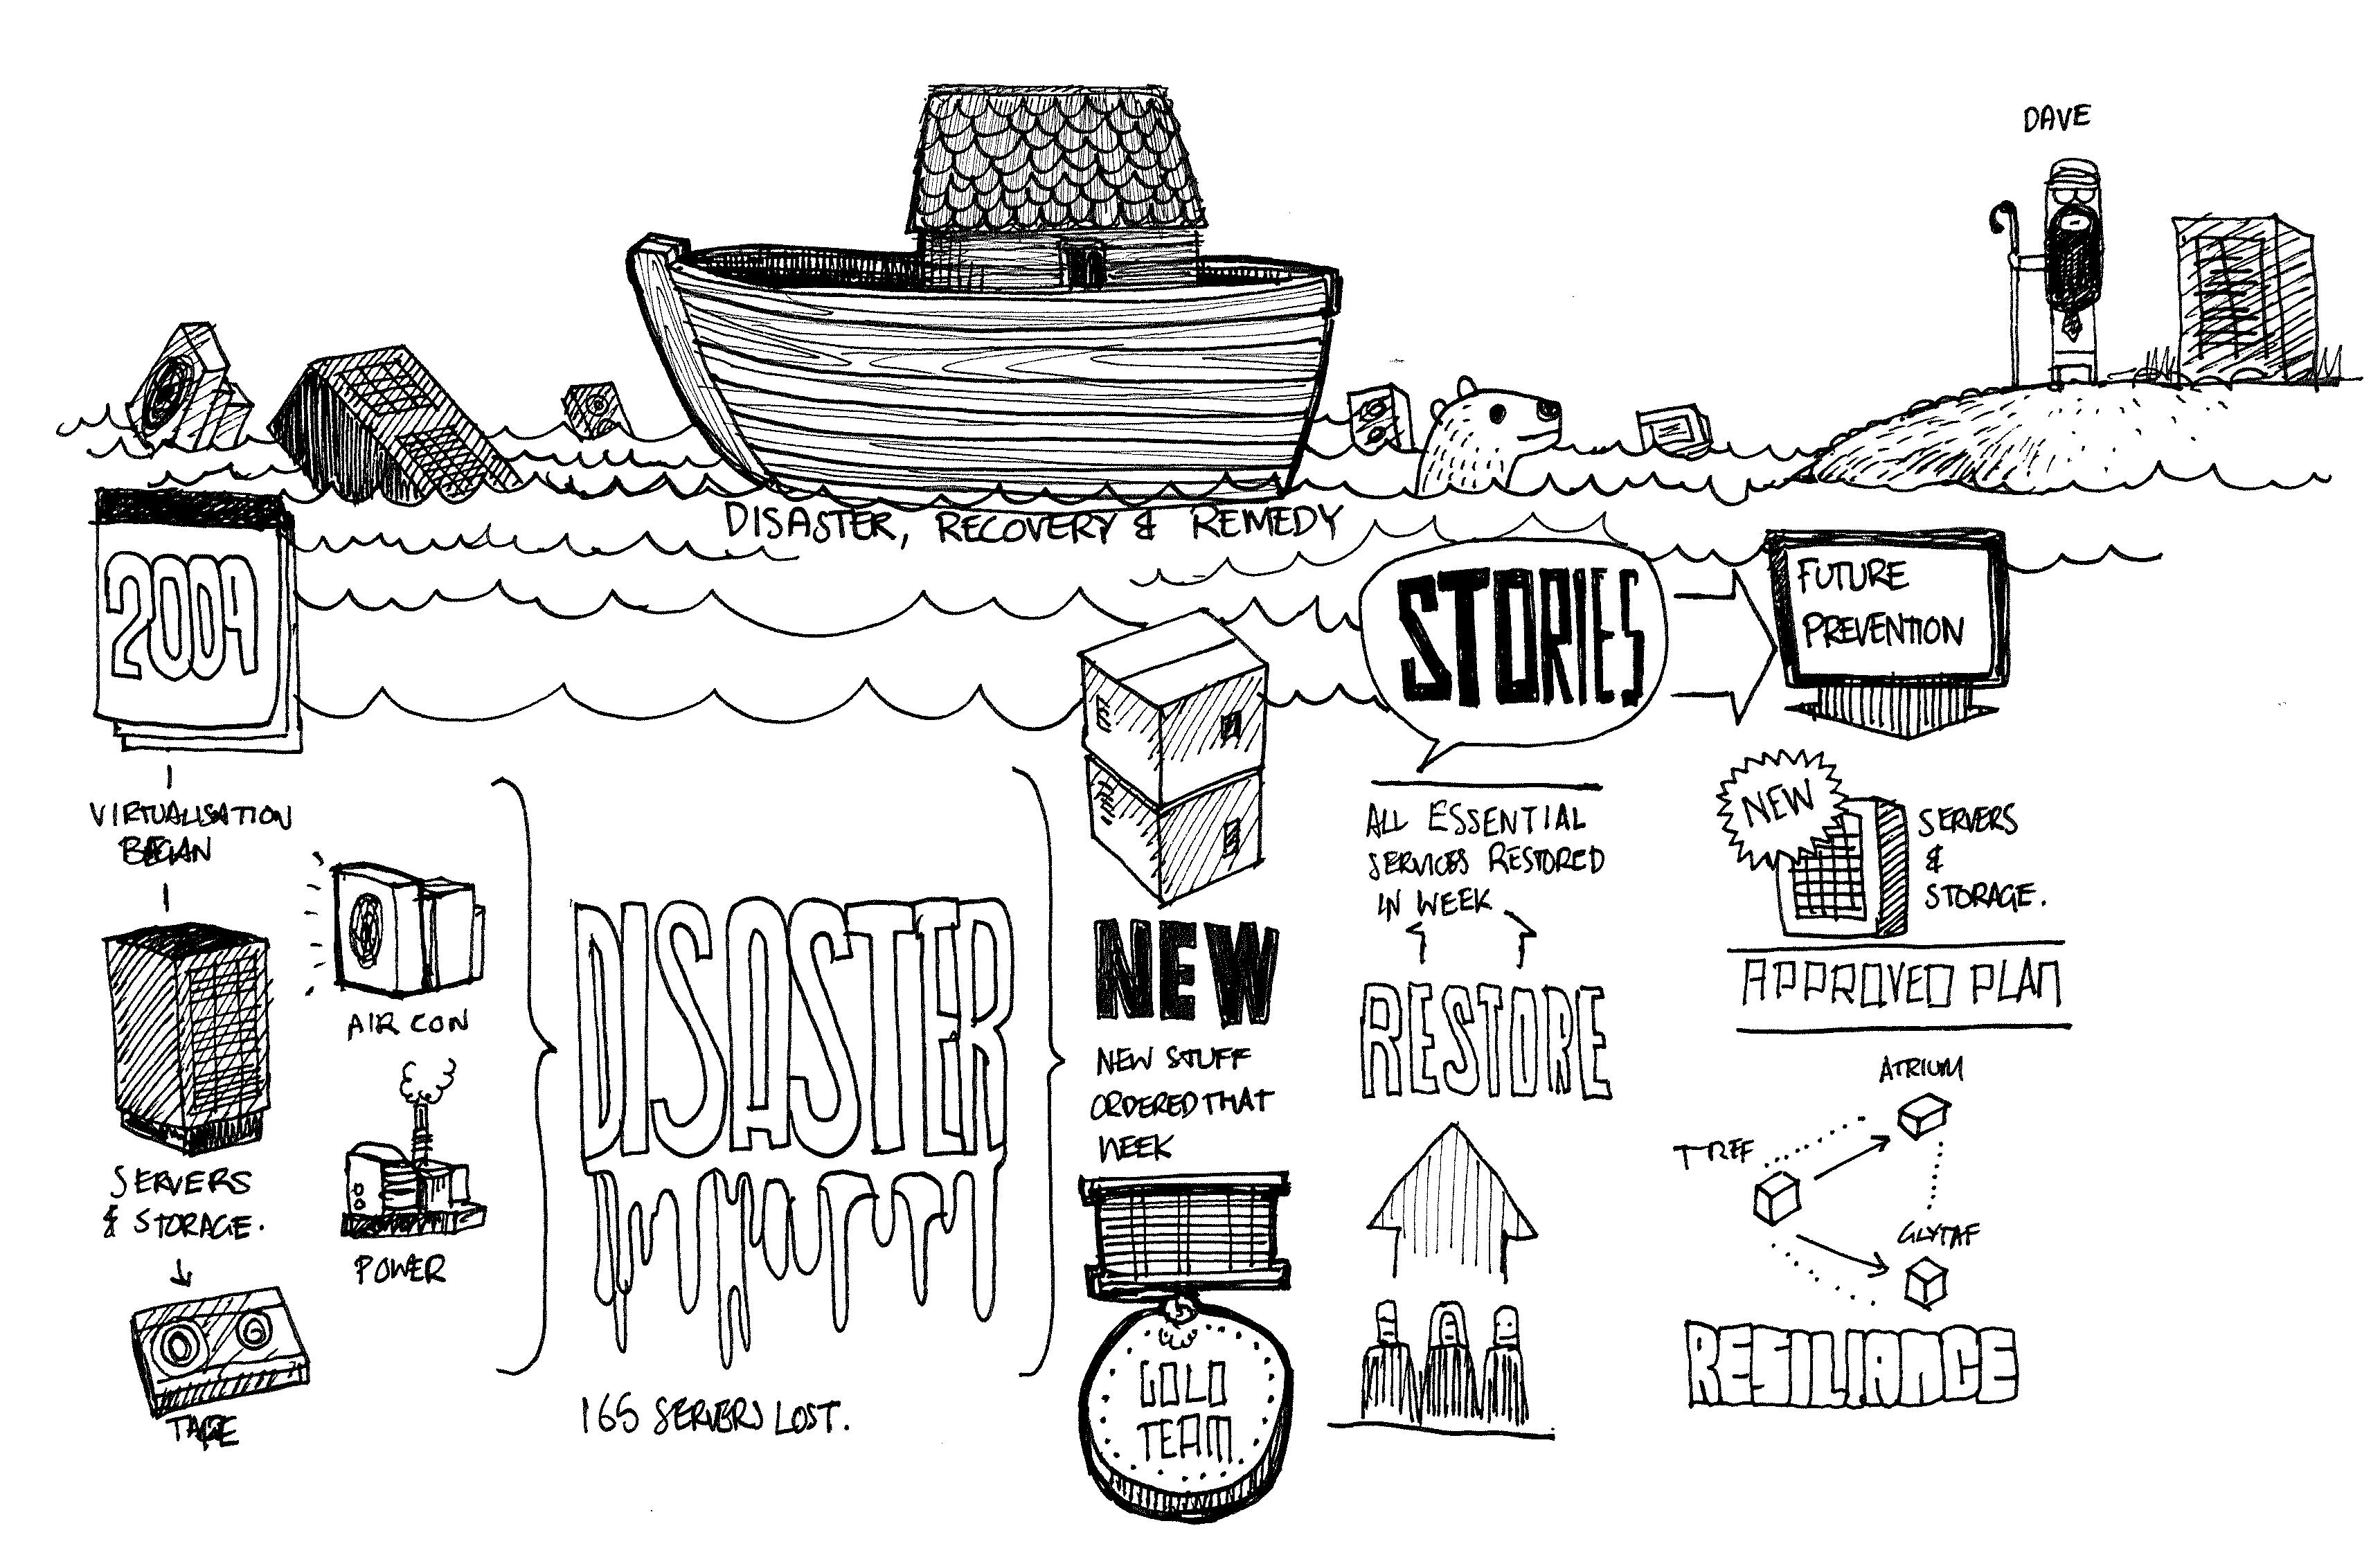 DAVE
DISASTER, RECOVERY & REMEDY
2009
VIRTUALISATION
BEGAN
SERVERS
& STORAGE.
TAPE
AIR CON
POWER
DISASTER
165 SERVERS LOST.
NEW
NEW STUFF
ORDERED THAT
WEEK
GOLD
TEAM
STORIES
ALL ESSENTIAL
SERVICES RESTORED
IN WEEK
RESTORE
FUTURE
PREVENTION
NEW
SERVERS
&
STORAGE.
APPROVED PLAN
ATRIUM
TREF
GLYTAF
RESILIANCE